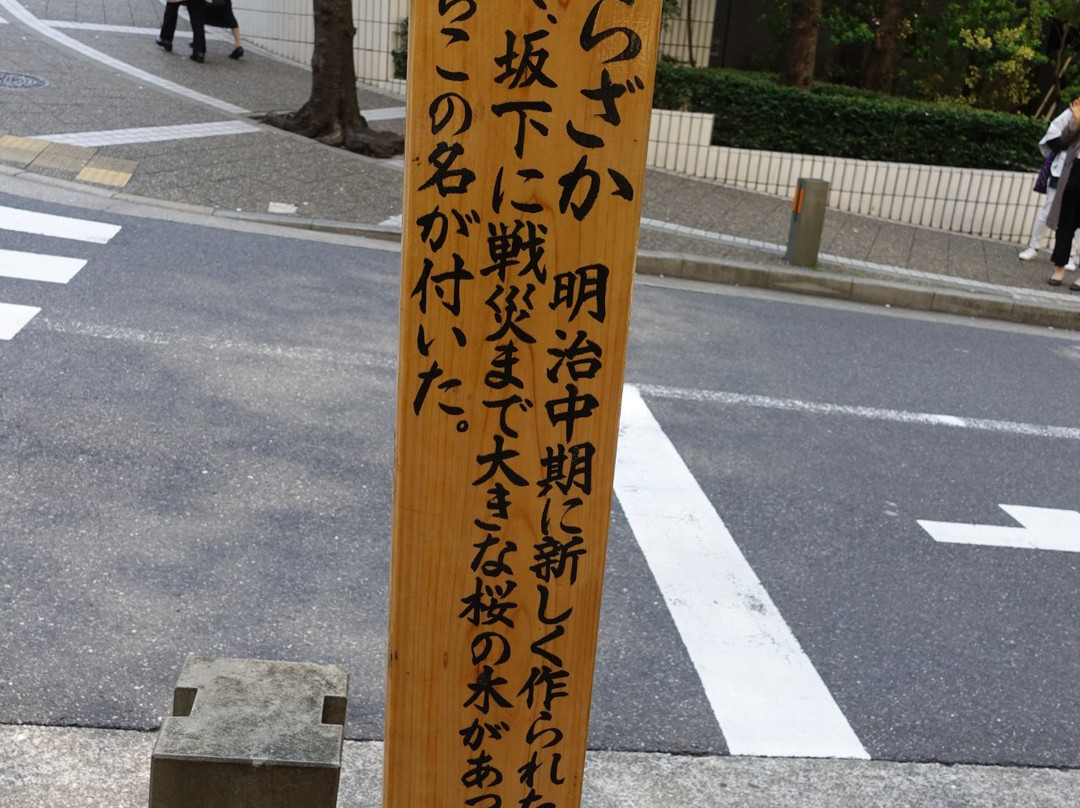 らざか 明治中期に新しく作られた
、坂下に戦災まで大きな桜の木があつ
らこの名が付いた。